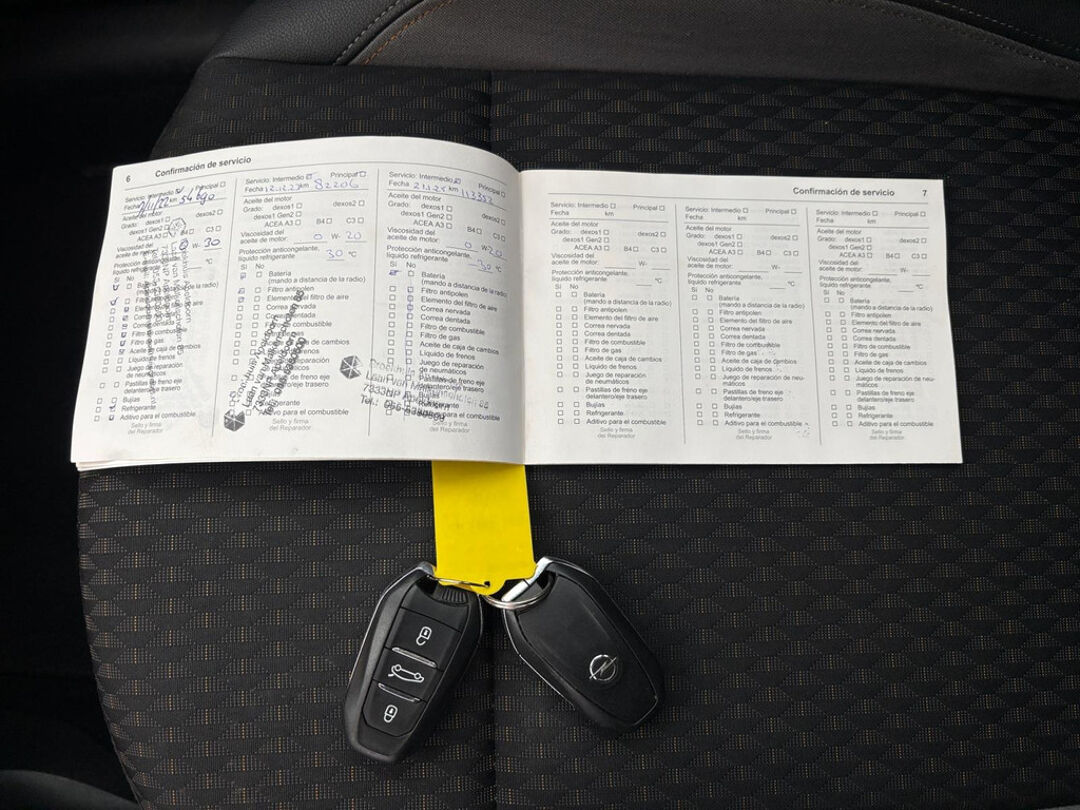 6 Confirmación de servicio
Servicio: Intermedio Principal
Fecha 2/11/22 km
Aceite del motor
Grado: dexos1 dexos2
dexos1 Gen2
ACEA A3 B4 C3
Viscosidad del
aceite de motor: 0 W- 30
Protección anticongelante,
líquido refrigerante °C
Si No
Batería
Elemento
Correa dentada
Filtro de combustible
Filtro de gas
Líquido de frenos
Juego de reparación
de neumáticos
Pastillas de freno eje
delantero/eje trasero
Bujías
Refrigerante
Aditivo para el combustible
Sello y firma
del Reparador
Servicio: Intermedio Principal
Fecha 12.12.23 km 82206
Aceite del motor
Grado: dexos1 dexos2
dexos1 Gen2
ACEA A3 B4 C3
Viscosidad del
aceite de motor: 0 W- 20
Protección anticongelante,
líquido refrigerante 30 °C
Si No
Batería
(mando a distancia de la radio)
Filtro antipolen
Elemento del filtro de aire
Aditivo para el combustible
Sello y firma
del Reparador
Servicio: Intermedio Principal
Fecha 21.1.25 km 113352
Aceite del motor
Grado: dexos1 dexos2
dexos1 Gen2
ACEA A3 B4 C3
Viscosidad del
aceite de motor: 0 W- 20
Protección anticongelante,
líquido refrigerante -30 °C
Si No
Batería
(mando a distancia de la radio)
Filtro antipolen
Elemento del filtro de aire
Correa nervada
Correa dentada
Filtro de combustible
Filtro de gas
Aceite de caja de cambios
Líquido de frenos
Juego de reparación
de neumáticos
Pastillas de freno eje
delantero/eje trasero
Bujías
Refrigerante
Aditivo para el combustible
Sello y firma
del Reparador
Confirmación de servicio 7
Servicio: Intermedio Principal
Fecha km
Aceite del motor
Grado: dexos1 dexos2
dexos1 Gen2
ACEA A3 B4 C3
Viscosidad del
aceite de motor: W-
Protección anticongelante,
líquido refrigerante °C
Si No
Batería
(mando a distancia de la radio)
Filtro antipolen
Elemento del filtro de aire
Correa nervada
Correa dentada
Filtro de combustible
Filtro de gas
Aceite de caja de cambios
Líquido de frenos
Juego de reparación
de neumáticos
Pastillas de freno eje
delantero/eje trasero
Bujías
Refrigerante
Aditivo para el combustible
Sello y firma
del Reparador
Servicio: Intermedio Principal
Fecha km
Aceite del motor
Grado: dexos1 dexos2
dexos1 Gen2
ACEA A3 B4 C3
Viscosidad del
aceite de motor: W-
Protección anticongelante,
líquido refrigerante °C
Si No
Batería
(mando a distancia de la radio)
Filtro antipolen
Elemento del filtro de aire
Correa nervada
Correa dentada
Filtro de combustible
Filtro de gas
Aceite de caja de cambios
Líquido de frenos
Juego de reparación de neu-
máticos
Pastillas de freno eje
delantero/eje trasero
Bujías
Refrigerante
Aditivo para el combustible
Sello y firma
del Reparador
Servicio: Intermedio Principal
Fecha km
Aceite del motor
Grado: dexos1 dexos2
dexos1 Gen2
ACEA A3 B4 C3
Viscosidad del
aceite de motor: W-
Protección anticongelante,
líquido refrigerante °C
Si No
Batería
(mando a distancia de la radio)
Filtro antipolen
Elemento del filtro de aire
Correa nervada
Correa dentada
Filtro de combustible
Filtro de gas
Aceite de caja de cambios
Líquido de frenos
Juego de reparación de neu-
máticos
Pastillas de freno eje
delantero/eje trasero
Bujías
Refrigerante
Aditivo para el combustible
Sello y firma
del Reparador